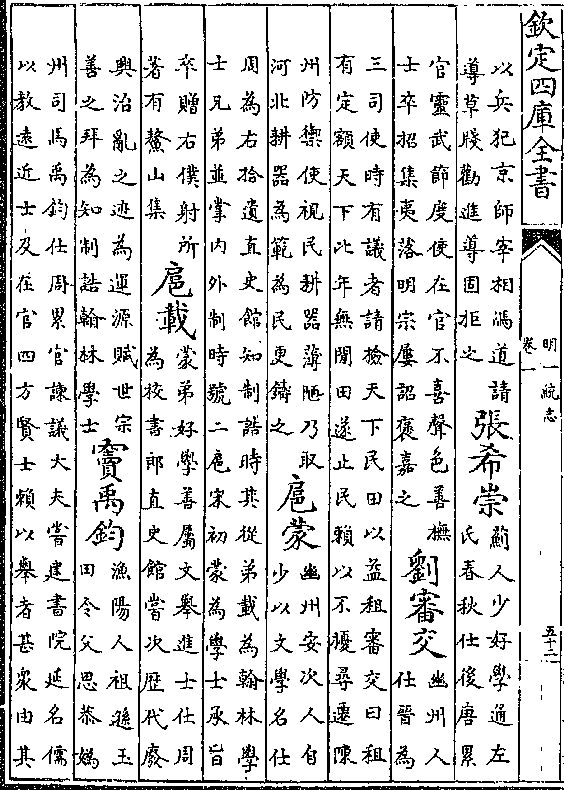 欽定四庫全書
明一統志
卷一
五十二
以兵犯京師宰相馮道請
導草牋勸進導固拒之
張希崇
薊人少好學通左
氏春秋仕後唐累
官靈武節度使在官不喜聲色善撫
士卒招集夷落明宗屢詔褒嘉之
劉審交
幽州人
仕晉為
三司使時有議者請檢天下民田以益租審交曰租
有定額天下比年無閒田遂止民賴以不擾尋遷陳
州防禦使視民耕器薄陋乃取
河北耕器為範為民更鑄之
扈蒙
幽州安次人自
少以文學名仕
周為右拾遺直史館知制誥時其從弟載為翰林學
士兄弟並掌内外制時號二扈宋初蒙為學士承旨
卒贈右僕射所
著有鰲山集
扈載
蒙弟好學善屬文舉進士仕周
為校書郎直史館嘗次歷代廢
興治亂之迹為運源賦世宗
善之拜為知制誥翰林學士
竇禹鈞
漁陽人祖遜玉
田令父思恭媯
州司馬禹鈞仕周累官諫議大夫嘗建書院延名儒
以教遠近士及在官四方賢士賴以舉者甚衆由其